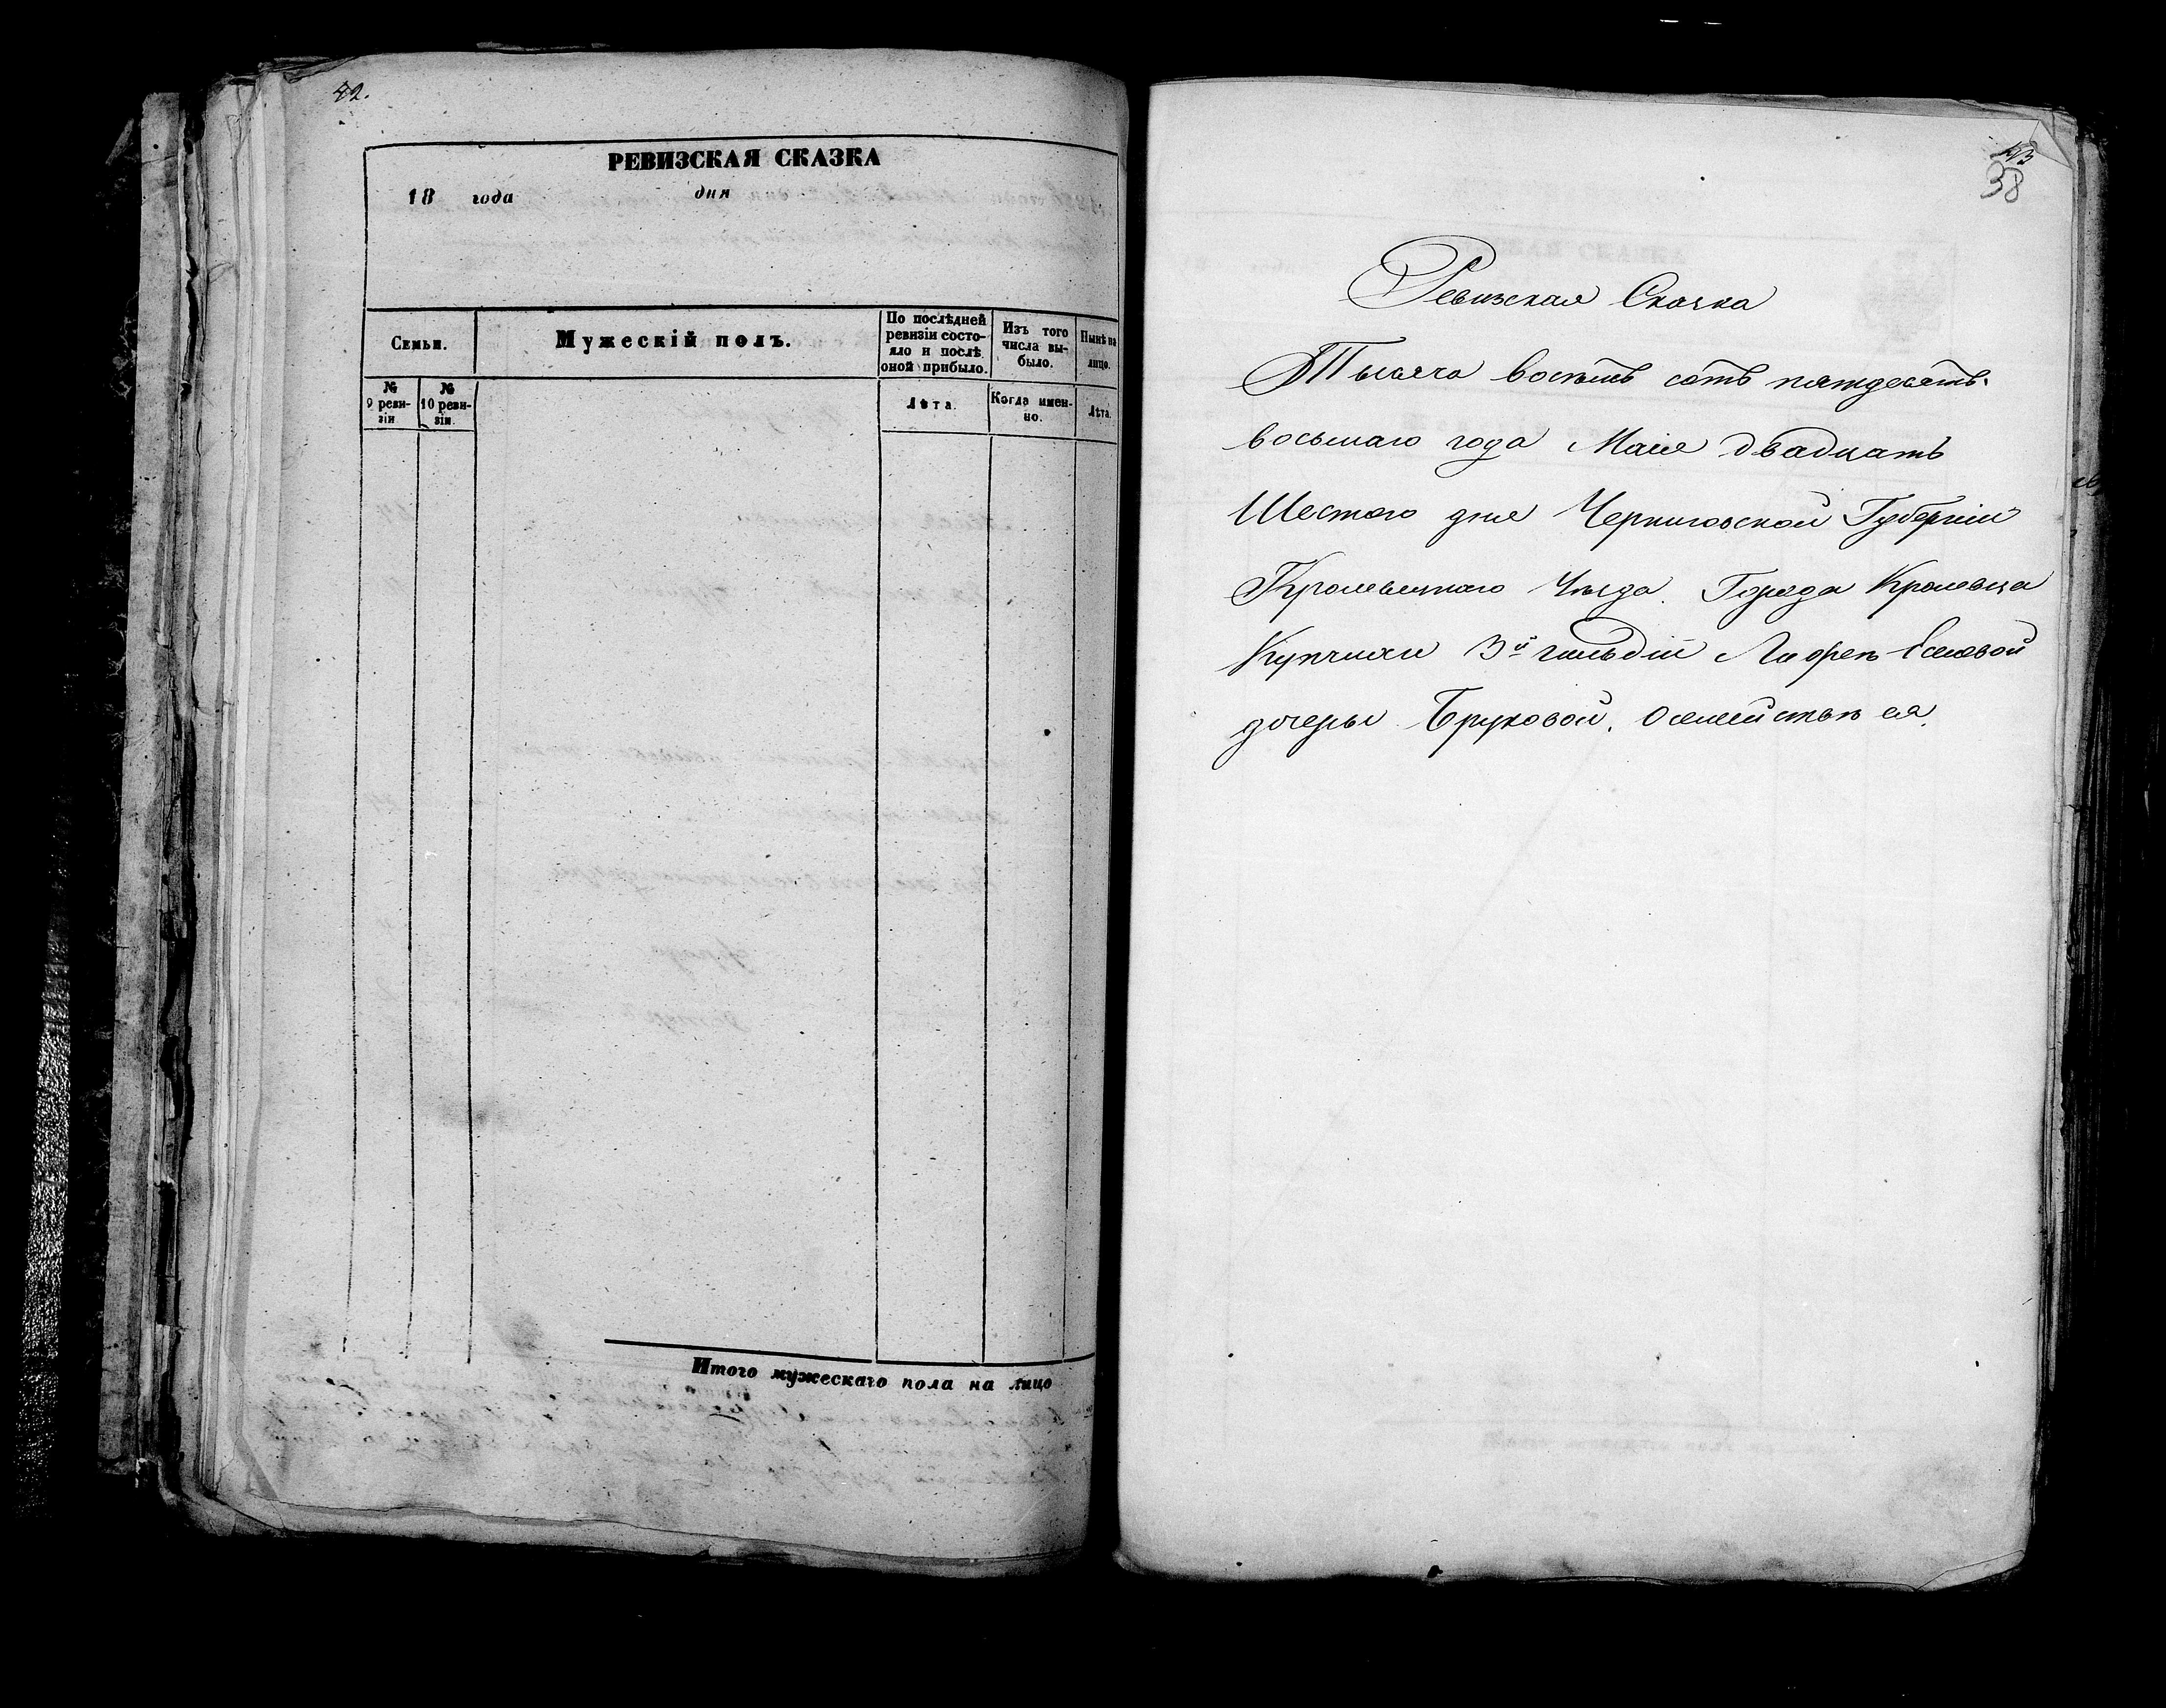 42.
РЕВИЗСКАЯ СКАЗКА
18 года дня
Семьи.
Мужескій полъ.
По послѣдней ревизіи состояло и послѣ оной прибыло.
Изъ того числа выбыло.
Нынѣ на лицо.
№ 9 ревизіи
№ 10 ревизіи.
Лѣта.
Когда именно.
Лѣта.
Итого мужескаго пола на лицо
43
38
Ревизская Сказка
Тысяча восемь сотъ пятдесятъ
восьмаго года Маія двадцать
Шестого дня Черниговской Губерніи
Кролевецкаго Уѣзда. Города Кролевца
Купчихи 3й гильдіи
дочеры Бруховой. О семействѣ ея.